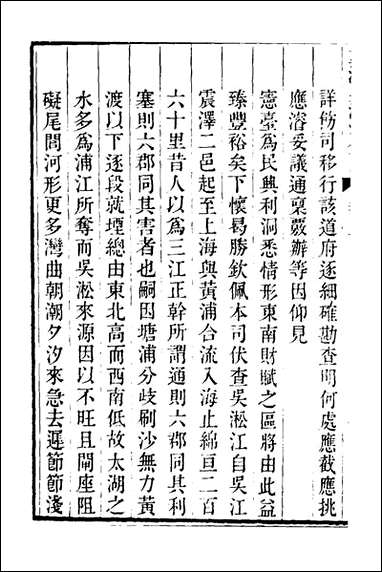 詳飭司移行該道府逐細確勘查明何處應截應挑
應濬妥議通稟覈辦等因仰見
憲臺爲民興利洞悉情形東南財賦之區將由此益
臻豐裕矣下懷曷勝欽佩本司伏查吳淞江自吳江
震澤二邑起至上海與黃浦合流入海止綿亘二百
六十里昔人以爲三江正幹所謂通則六郡同其利
塞則六郡同其害者也嗣因塘浦分歧刷沙無力黃
渡以下逐段就堙總由東北高而西南低故太湖之
水多爲浦江所奪而吳淞來源因以不旺且閘座阻
礙尾閭河形更多灣曲朝潮夕汐來急去遲節節淺